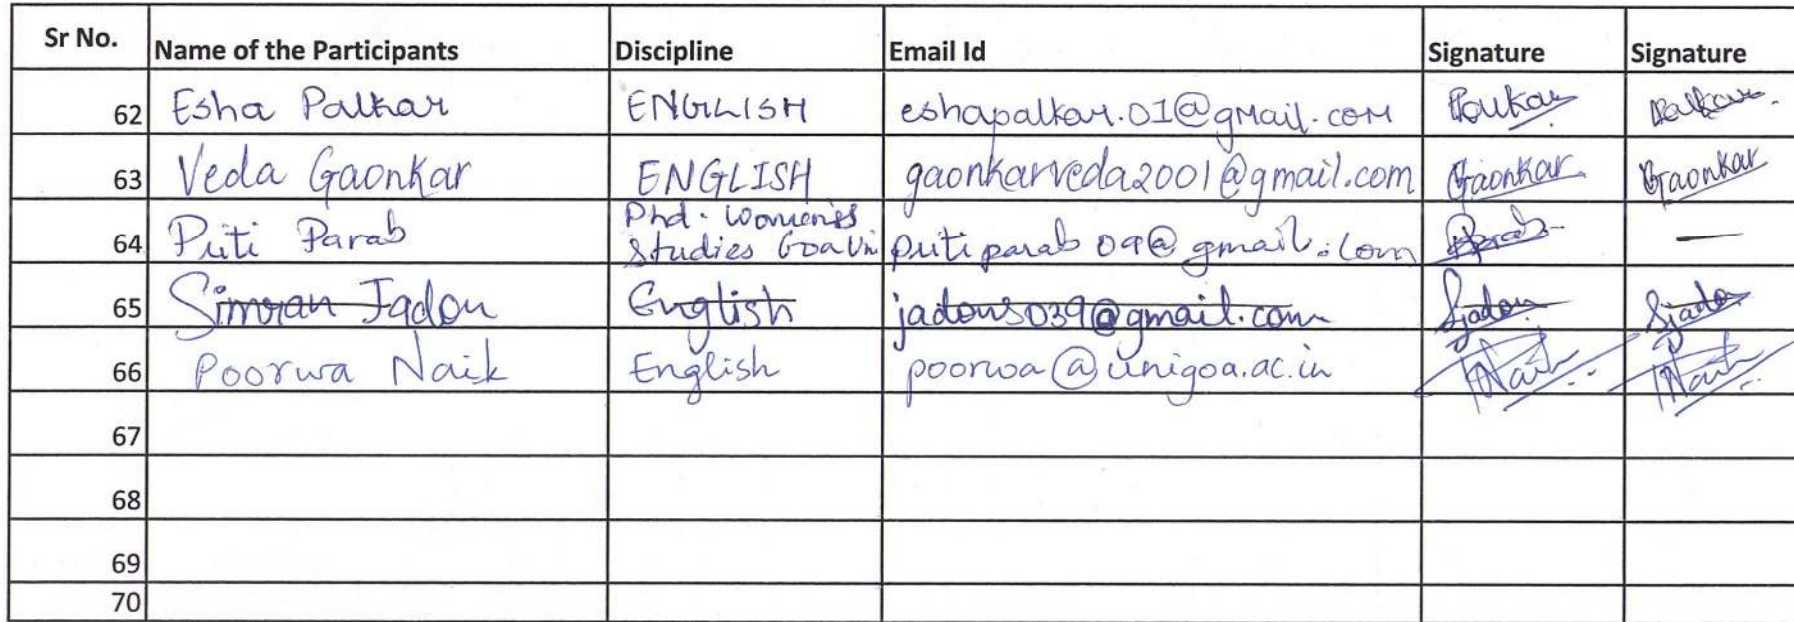 Sr No. Name of the Participants Discipline Email Id Signature Signature
62 Esha Palkar ENGLISH eshapalkar.01@gmail.com Palkar Palkar
63 Veda Gaonkar ENGLISH gaonkarveda2001@gmail.com Gaonkar Gaonkar
64 Priti Parab Phd. Women's Studies Goa Uni pritiparab09@gmail.com Parab —
65 Simran Jadon English jadons039@gmail.com Sjadon Sjadon
66 Poorwa Naik English poorwa@unigoa.ac.in Naik Naik
67
68
69
70